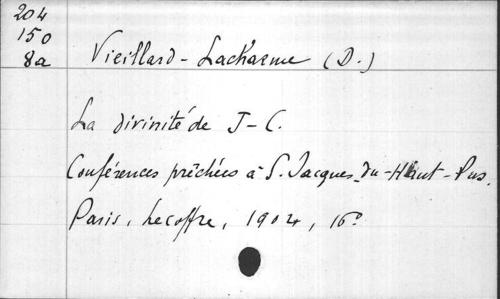 204
150
8a
Vieillard-Lacharme (D.)
La divinité de J-C.
Conférences prêchées à S. Jacques-du-Haut-Pas.
Paris, Lecoffre, 1904, 16º